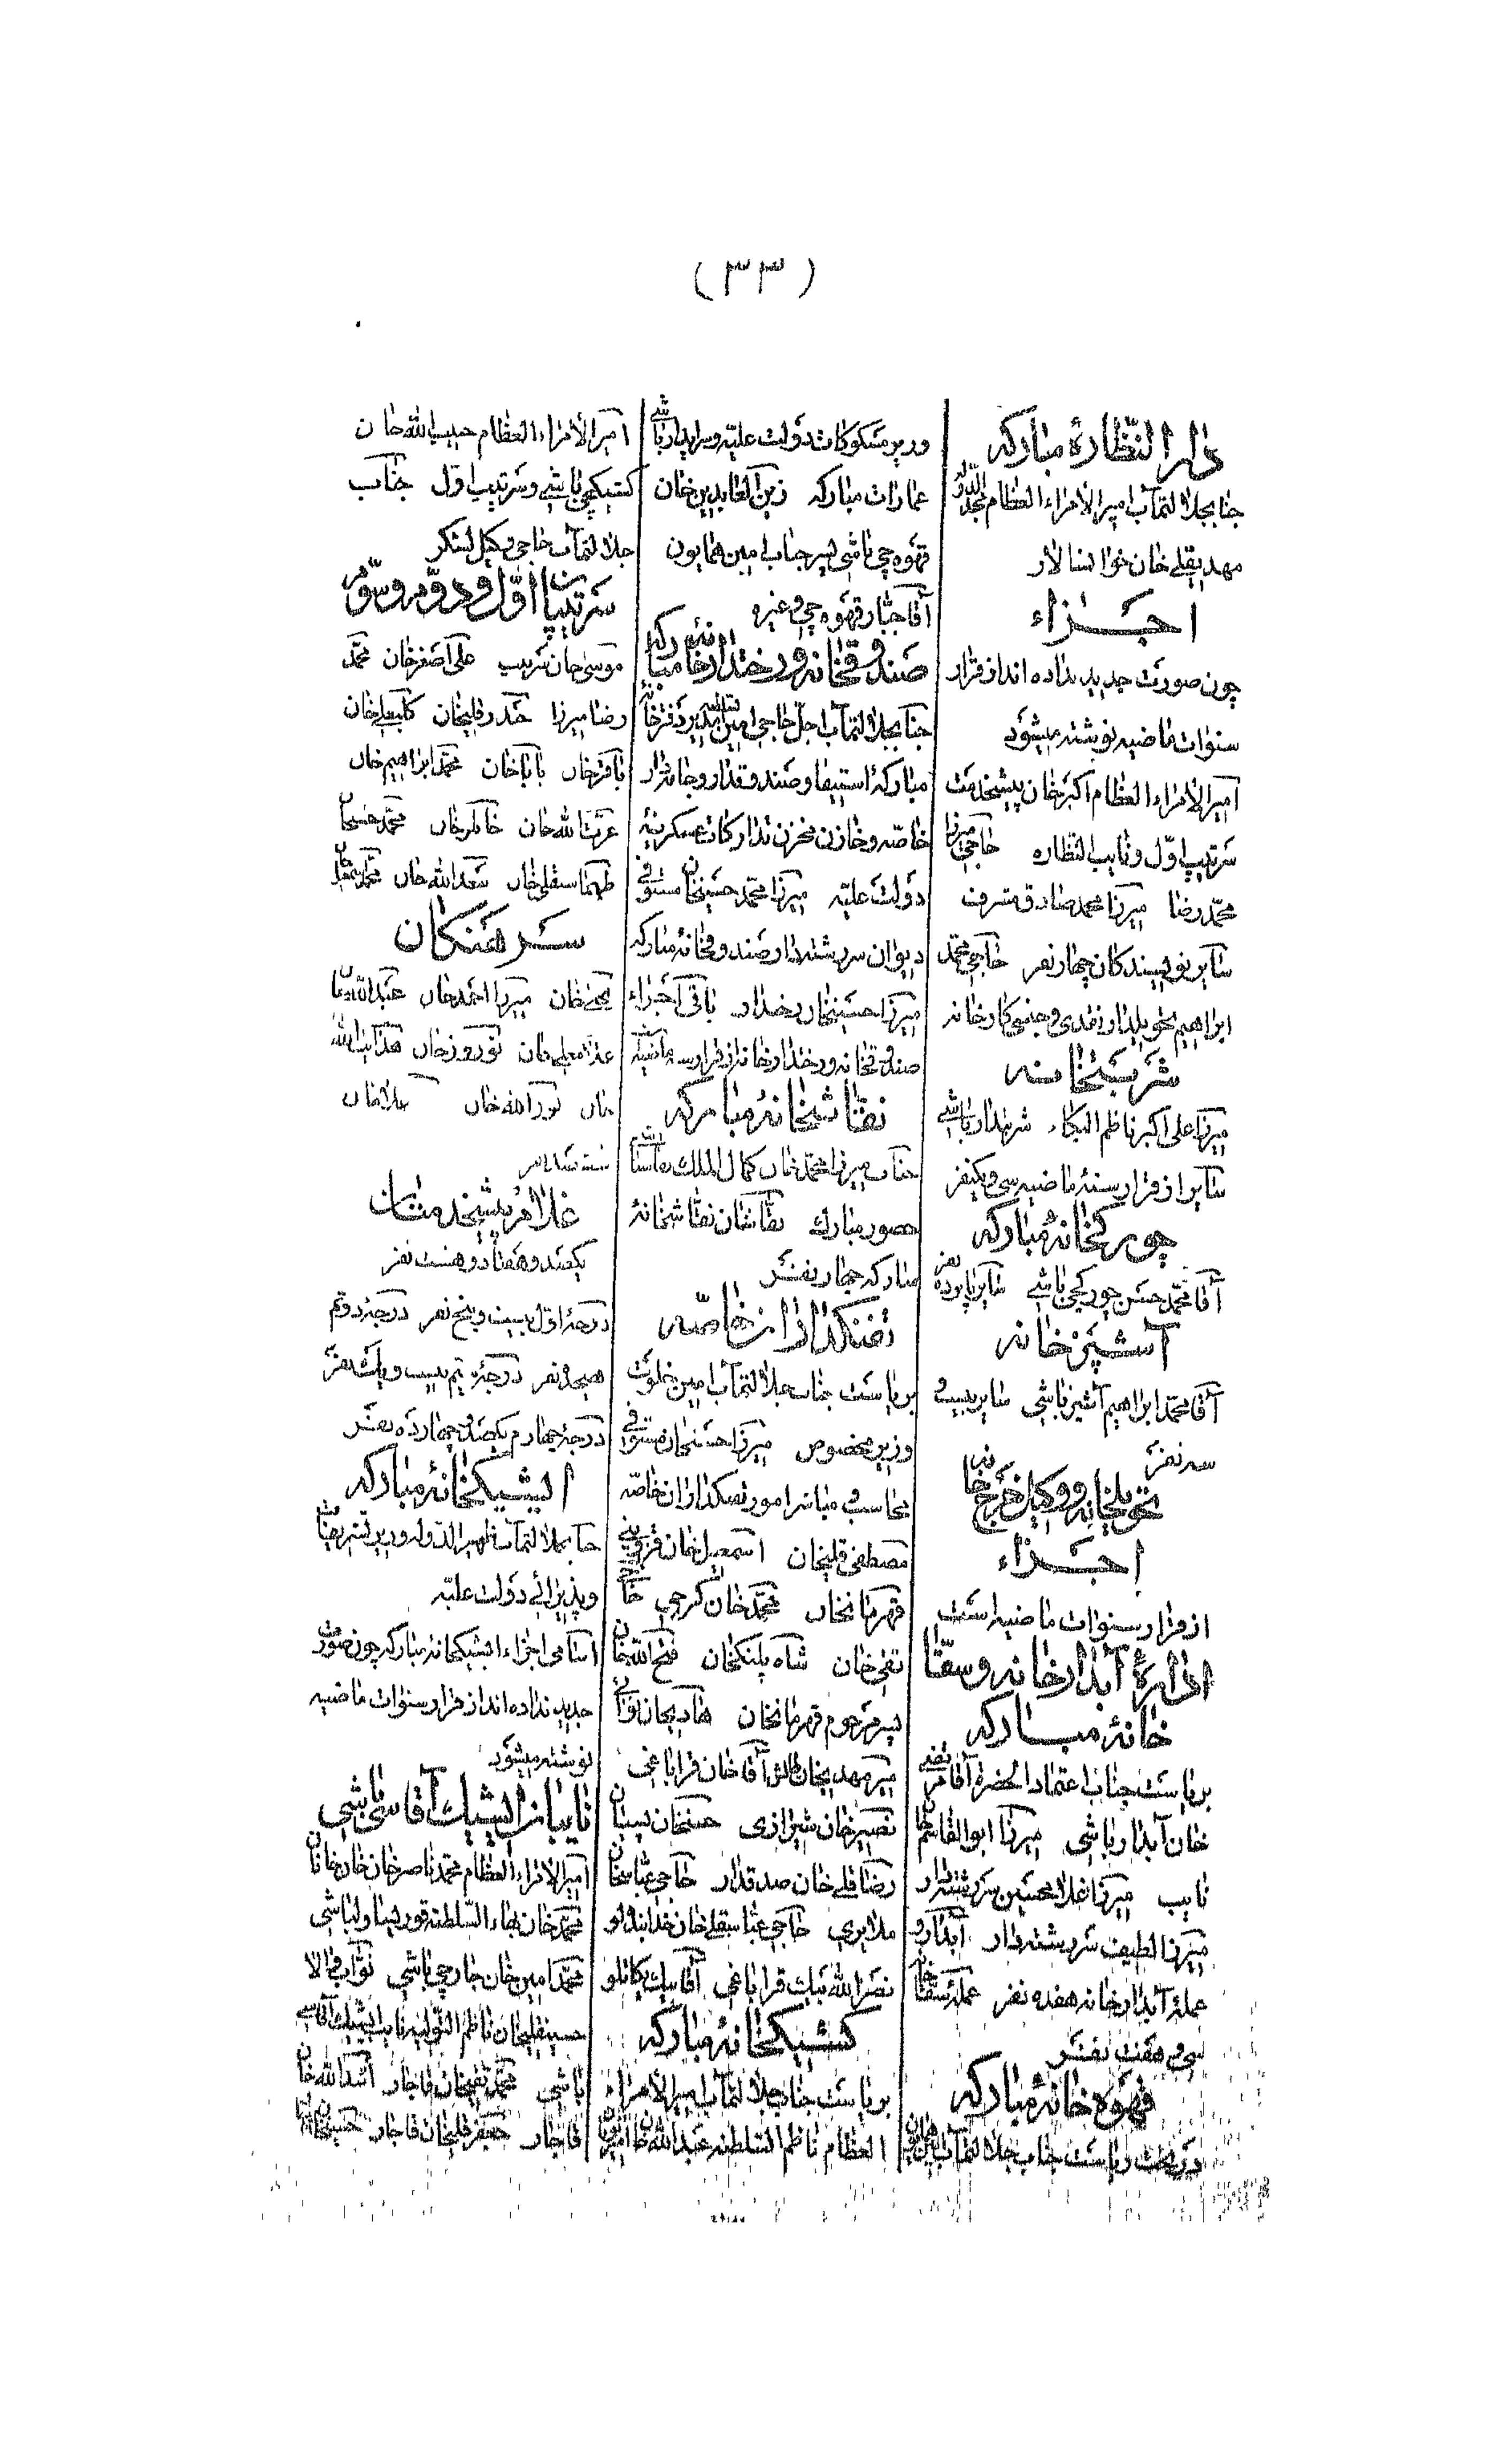 (۳۳)
دار النظارهٔ مبارکه
جناب جلالتمآب امیر الامراء العظام مجد الدوله
مهدیقلی خان خوانسالار
اجزاء
چون صورت جدید نداده‌اند از قرار
سنوات ماضیه نوشته میشود
امیر الامراء العظام اکبر خان پیشخدمت
سرتیپ اول و نایب النظاره حاجی میرزا
محمد رضا میرزا محمد صادق مشرف
سایر نویسندکان چهار نفر حاجی محمد
ابراهیم تحویلدار نقدی و جنسی کارخانه
شربتخانه
میرزا علی اکبر ناظم الحکماء شربتدار باشی
سایر از قرار سنهٔ ماضیه سی و یکنفر
چورکخانهٔ مبارکه
آقا محمد حسن چورکچی باشی سایر پانزده نفر
آشپزخانه
آقا محمد ابراهیم آشپز باشی سایر بیست و
سه نفر
تحویلخانه و وکیل خرج خانه
اجزاء
از قرار سنوات ماضیه است
ادارهٔ آبدار خانه و سقا
خانهٔ مبارکه
بریاست جناب اعتماد الحضره آقا مرتضی
خان آبدار باشی میرزا ابو القاسم خان
نایب میرزا غلامحسین سررشته‌دار
میرزا لطیف سررشته دار آبدار و
عملهٔ آبدار خانه هفده نفر عملهٔ سقاخانه
سی و هفت نفر
قهوه خانهٔ مبارکه
در تحت ریاست جناب جلالتمآب امین همایون
وزیر مسکوکات دولت علیه و سرایدار باشی
عمارات مبارکه زین العابدین خان
قهوه چی باشی پسر جناب امین همایون
آقا جبار قهوه چی و غیره
صندوقخانه و رختدارخانهٔ مبارکه
جناب جلالتمآب اجل حاجی امین السلطنه وزیر دفترخانه
مبارکهٔ استیفا و صندوقدار و جامه‌دار
خاصه و خازن مخزن تدارکات عسکریهٔ
دولت علیه میرزا محمد حسینخان مستوفی
دیوان سررشته‌دار صندوقخانهٔ مبارکه
میرزا حسینخان رختدار باقی اجزاء
صندوقخانه و رختدارخانه از قرار سنه ماضیه
نقاشخانهٔ مبارکه
جناب میرزا محمد خان کمال الملک نقاشباشی
حضور مبارک نقاشان نقاشخانهٔ
مبارکه چهار نفر
تفنکداران خاصه
بریاست جناب جلالتمآب امین خلوت
وزیر مخصوص میرزا حسنخان مستوفی
محاسب و مباشر امور تفنکداران خاصه
مصطفی قلیخان اسمعیل خان قزوینی
قهرمانخان محمد خان کرجی حاجی
تقی خان شاه پلنکخان فتح الله خان
پسر مرحوم قهرمانخان هادیخان
میر مهدیخان طالش آقا خان قراباغی
نصیر خان شیرازی حسنخان
رضا قلی خان صندقدار حاجی عباسخان
ملایری حاجی عباسقلی خان خدابنده‌لو
نصر الله بیک قراباغی آقا بیک
کشیکخانهٔ مبارکه
بریاست جناب جلالتمآب امیر الامراء
العظام ناظم السلطنه عبد الله خان
امیر الامراء العظام حبیب الله خان
کشیکچی باشی و سرتیپ اول جناب
جلالتمآب حاجی وکیل لشکر
سرتیپان اول و دوم و سوم
موسی خان سرتیپ علی اصغر خان محمد
رضا میرزا حیدر قلیخان کلبعلی خان
باقر خان بابا خان محمد ابراهیم خان
عزت الله خان خانلر خان محمد حسنخان
طهماسبقلی خان سعد الله خان
سرهنکان
یحیی خان میرزا احمد خان عبد الله خان
غلامعلی خان نوروز خان هدایت الله
خان نور الله خان
غلام پیشخدمتان
یکصد و هفتاد و هشت نفر
درجهٔ اول بیست و پنج نفر درجهٔ دوم
هیجده نفر درجهٔ سیم بیست و یک نفر
درجهٔ چهارم یکصد و چهارده نفر
ایشیکخانهٔ مبارکه
جناب جلالتمآب ظهیر الدوله وزیر تشریفات
و پذیرائی دولت علیه
اسامی اجزاء ایشیکخانهٔ مبارکه چون صورت
جدید نداده‌اند از قرار سنوات ماضیه
نوشته میشود
نایبان ایشیک آقاسی باشی
امیر الامراء العظام محمد ناصر خان
محمد خان بهاء السلطنه قوریساولباشی
محمد امین خان جارچی باشی نواب والا
حسینقلیخان ناظم التولیه نایب ایشیک آقاسی
باشی محمد تقیخان قاجار اسد الله خان
قاجار جعفر قلیخان قاجار